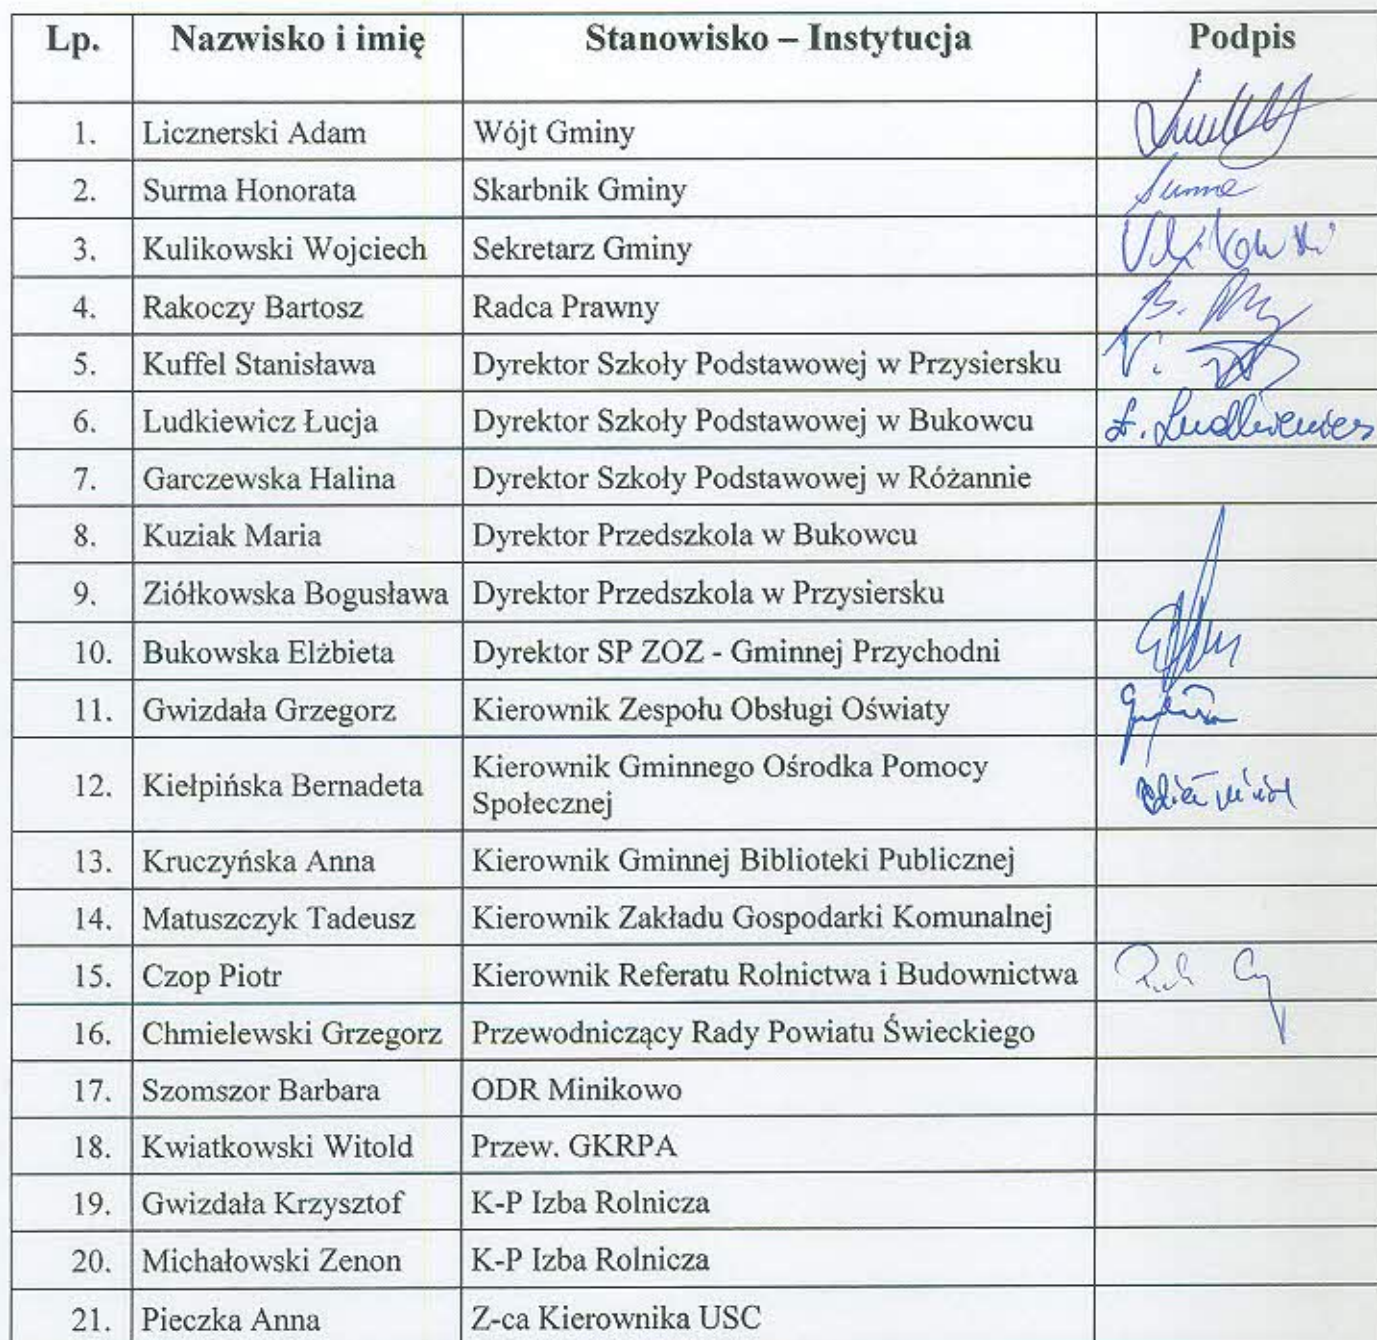 Lp. Nazwisko i imię Stanowisko – Instytucja Podpis
1. Licznerski Adam Wójt Gminy
2. Surma Honorata Skarbnik Gminy Surma
3. Kulikowski Wojciech Sekretarz Gminy
4. Rakoczy Bartosz Radca Prawny
5. Kuffel Stanisława Dyrektor Szkoły Podstawowej w Przysiersku
6. Ludkiewicz Łucja Dyrektor Szkoły Podstawowej w Bukowcu Ł. Ludkiewicz
7. Garczewska Halina Dyrektor Szkoły Podstawowej w Różannie
8. Kuziak Maria Dyrektor Przedszkola w Bukowcu
9. Ziółkowska Bogusława Dyrektor Przedszkola w Przysiersku
10. Bukowska Elżbieta Dyrektor SP ZOZ - Gminnej Przychodni
11. Gwizdała Grzegorz Kierownik Zespołu Obsługi Oświaty
12. Kiełpińska Bernadeta Kierownik Gminnego Ośrodka Pomocy
Społecznej
13. Kruczyńska Anna Kierownik Gminnej Biblioteki Publicznej
14. Matuszczyk Tadeusz Kierownik Zakładu Gospodarki Komunalnej
15. Czop Piotr Kierownik Referatu Rolnictwa i Budownictwa
16. Chmielewski Grzegorz Przewodniczący Rady Powiatu Świeckiego
17. Szomszor Barbara ODR Minikowo
18. Kwiatkowski Witold Przew. GKRPA
19. Gwizdała Krzysztof K-P Izba Rolnicza
20. Michałowski Zenon K-P Izba Rolnicza
21. Pieczka Anna Z-ca Kierownika USC